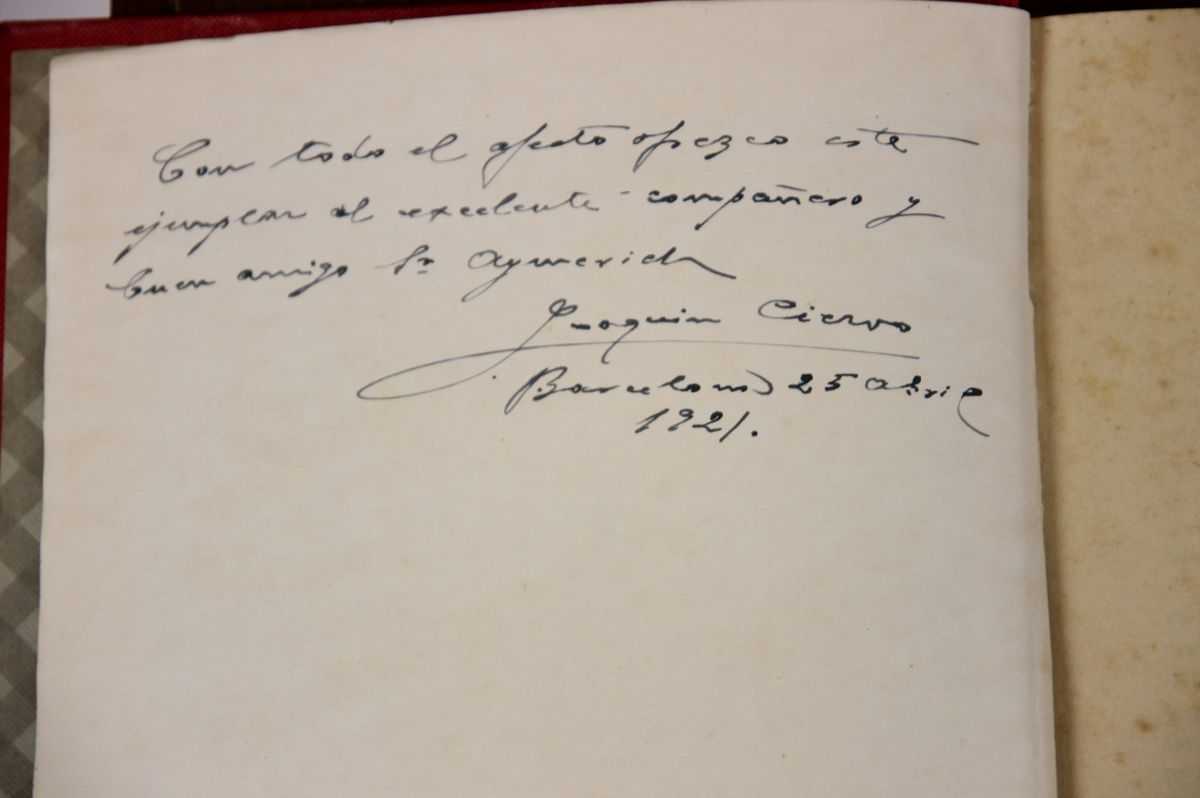 Con todo el afecto ofrezco este
ejemplar al excelente compañero y
buen amigo Sr Aymerich
Joaquin Ciervo
Barcelona 25 Abril
1921.